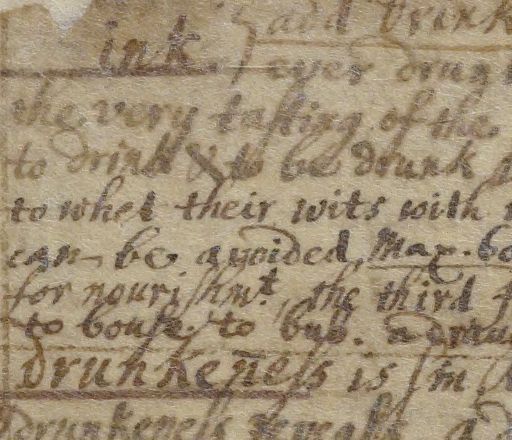 ink. add drink
ever drun
the very tasting of the
to drink & to be drunk
to whet their wits with
can be avoided Max. 60
for nourishmt, the third f
to bouse. to bub. a drun
drunkeness is
drunkeness